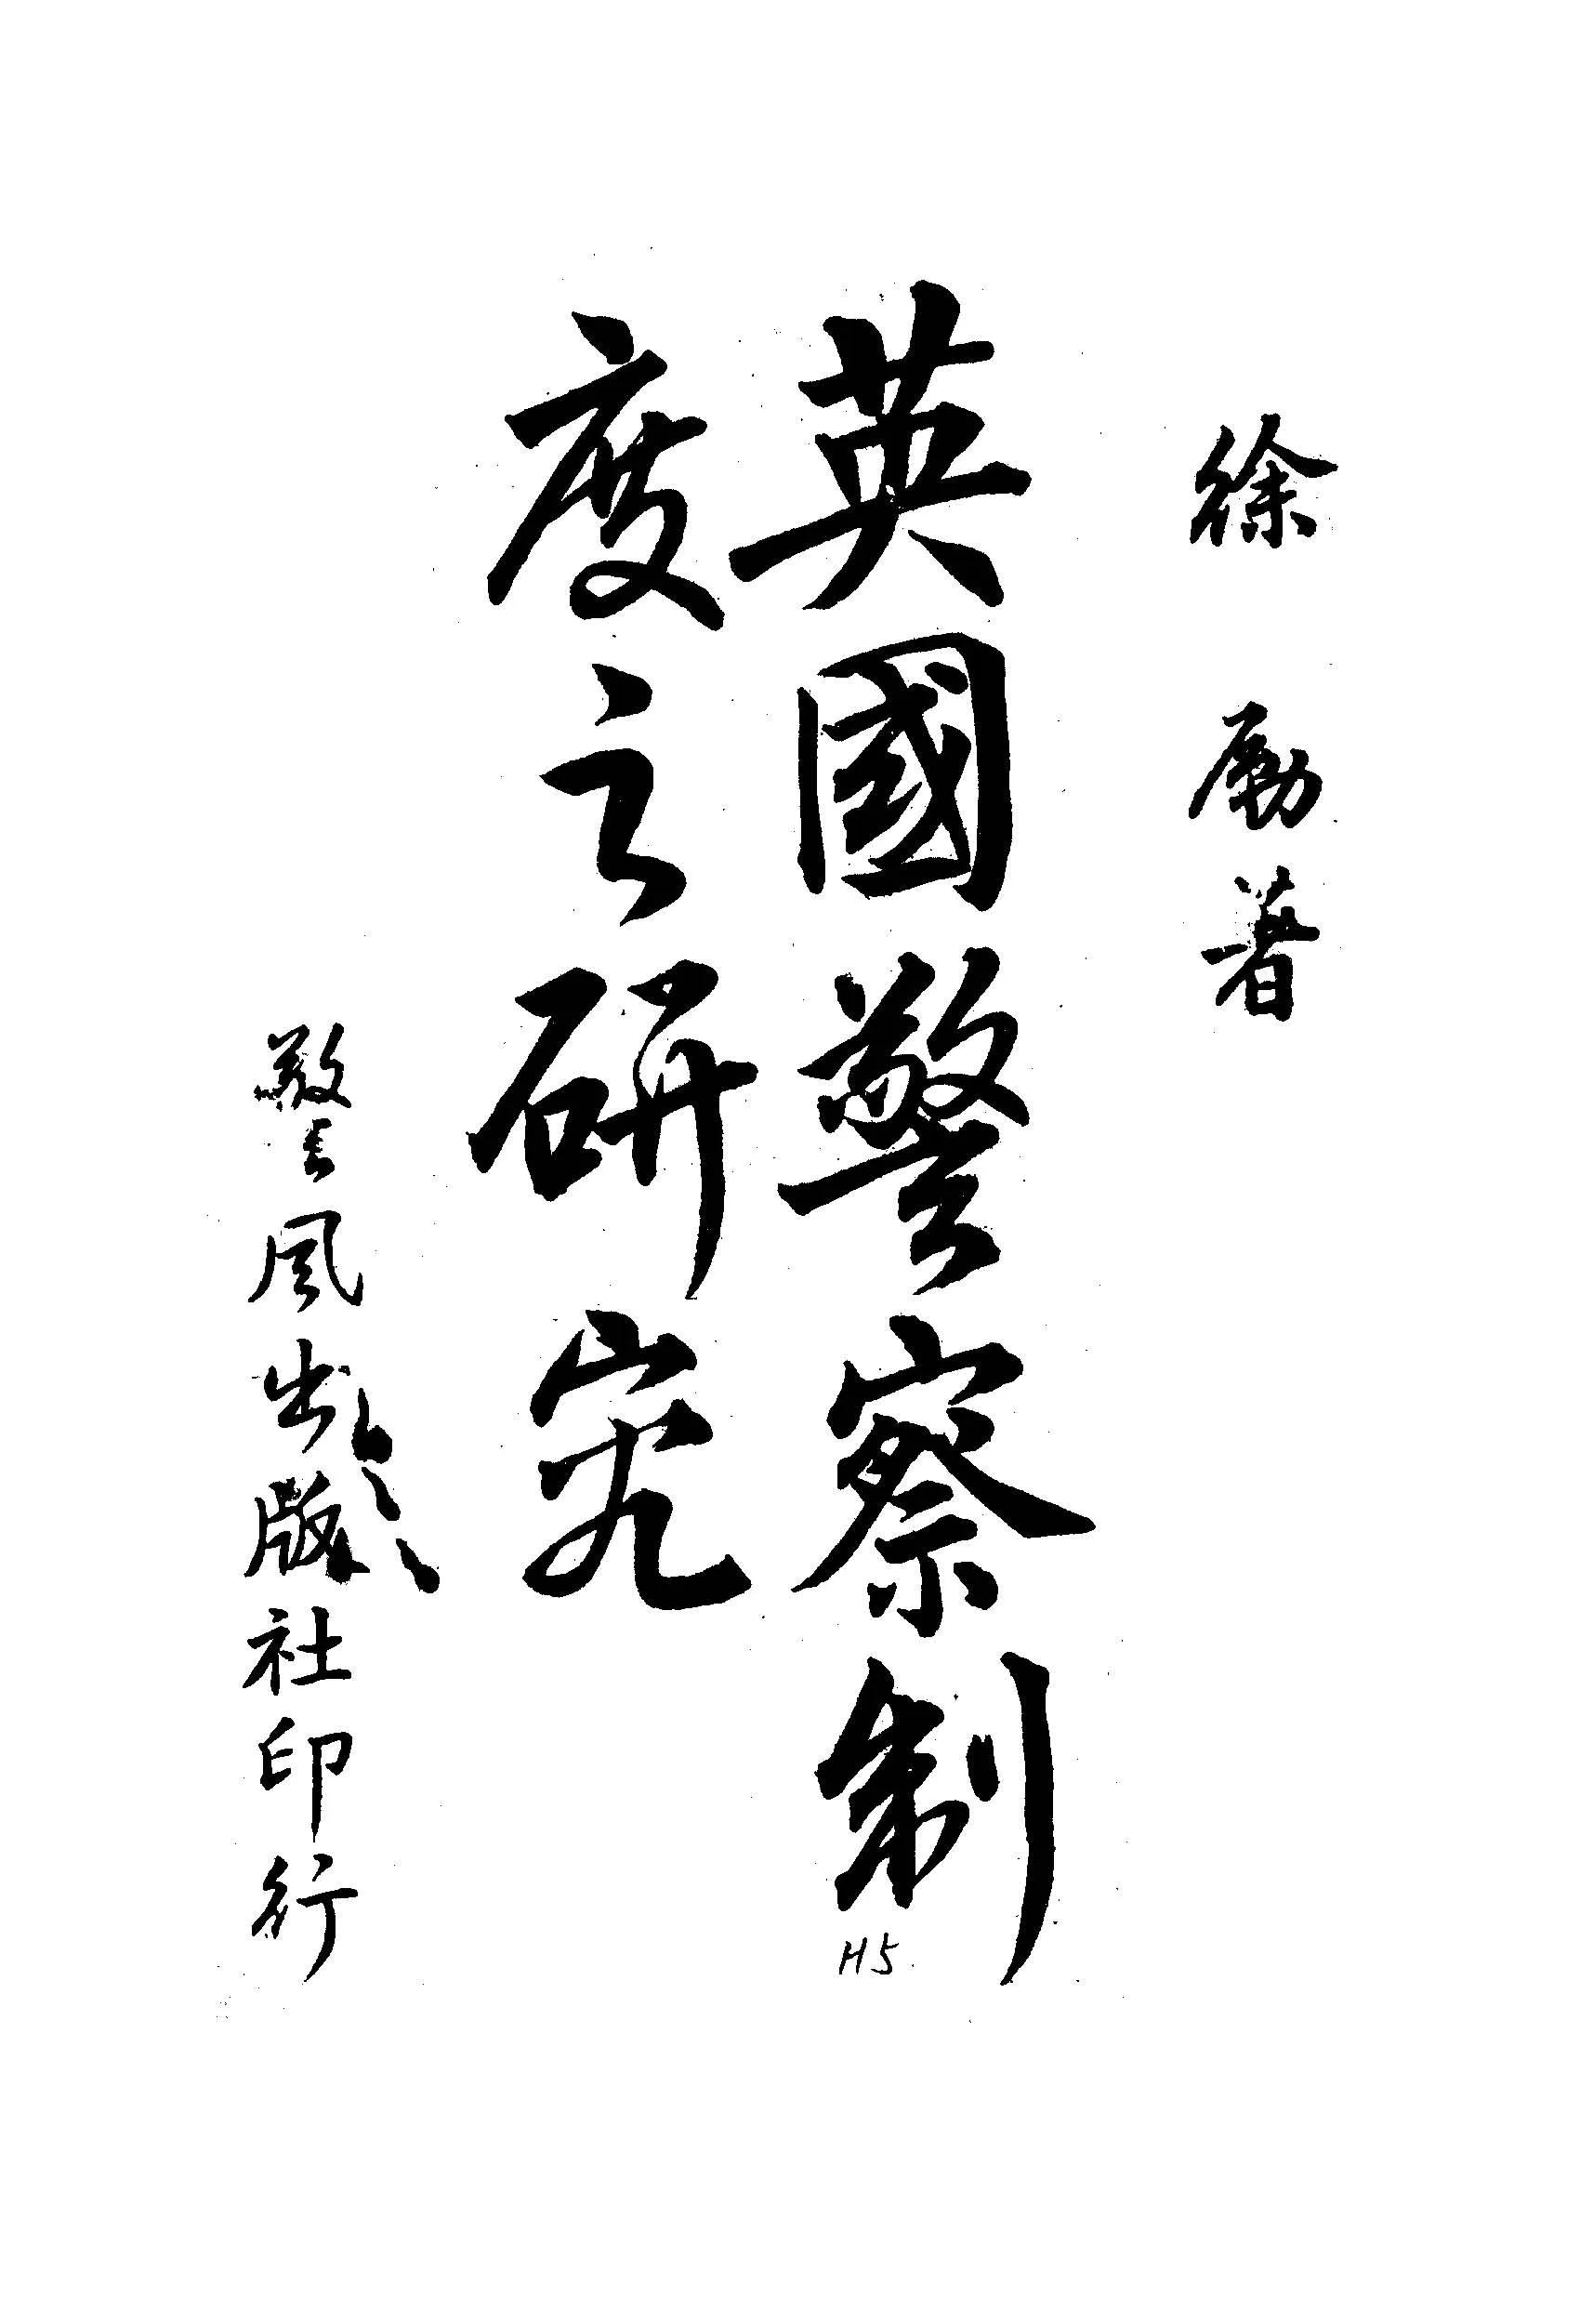 徐励著
英國警察制
度之研究
警风出版社印行
H5